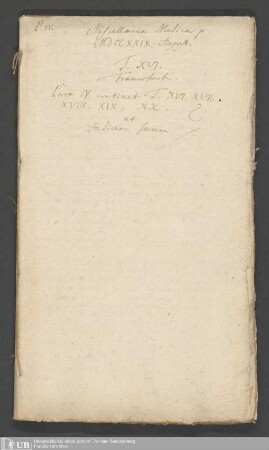 P. IV.
Miscellanea Medica
MDCCXXIX. August.
T. XVI.
Francofort.
Pars IV continet T. XVI. XVII.
XVIII. XIX. XX.
et
Indicem
UB
Universitätsbibliothek Johann Christian Senckenberg
Frankfurt am Main